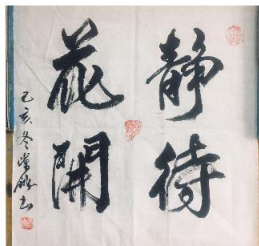 静待
花開
乙亥冬